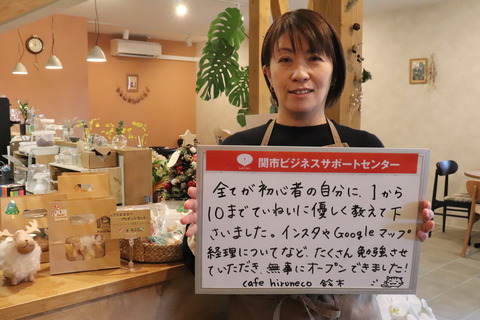 関市ビジネスサポートセンター
全てが初心者の自分に、1から
10までていねいに優しく教えて下
さいました。インスタやGoogleマップ
経理についてなど、たくさん勉強させ
ていただき、無事にオープンできました!
cafe hiruneco 鈴木